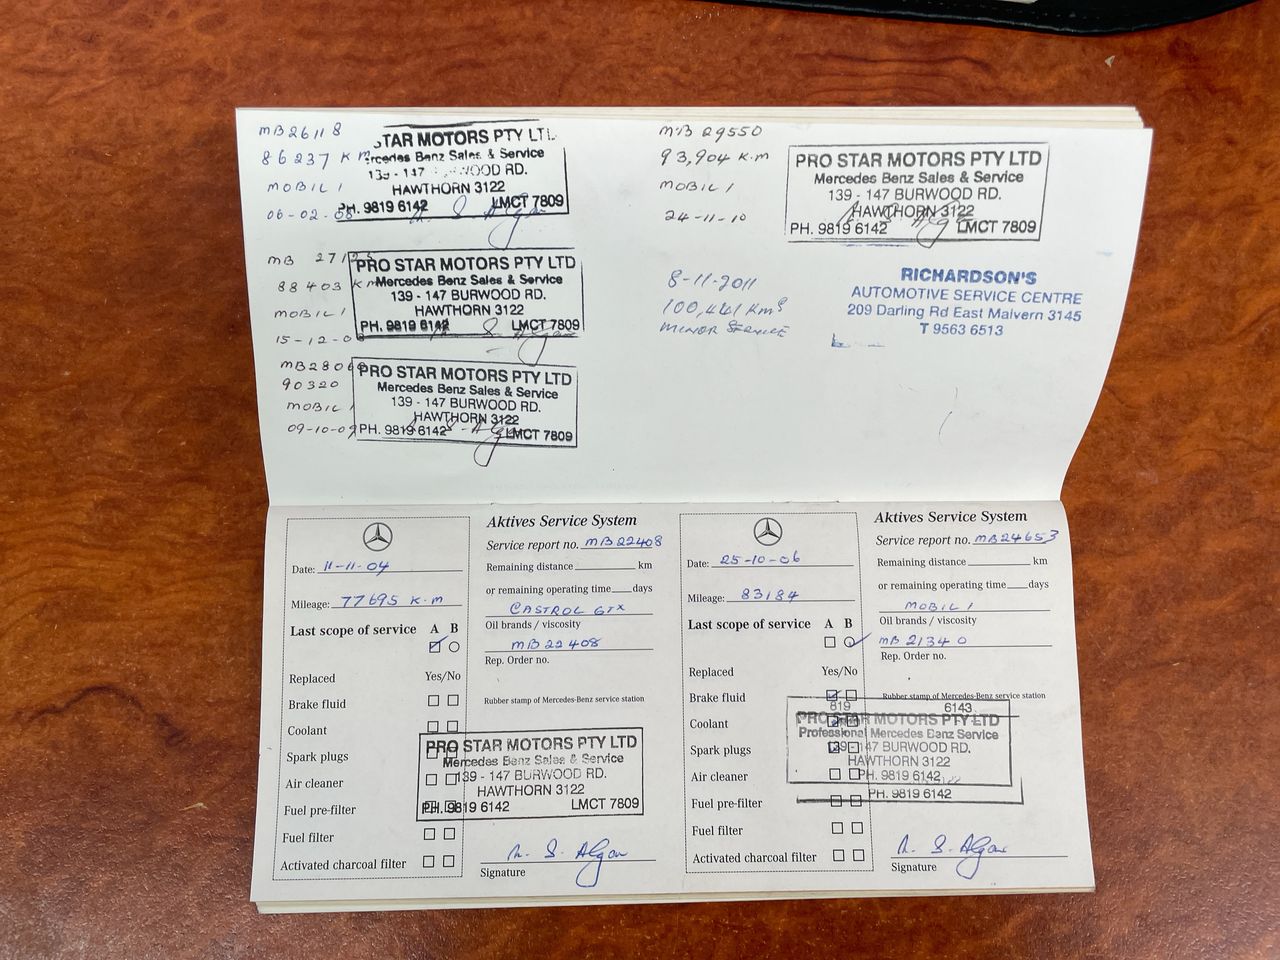 MB26118
86237 KM
MOBIL 1
06-02-08
STAR MOTORS PTY LTD
Mercedes Benz Sales & Service
139 - 147 BURWOOD RD.
HAWTHORN 3122
PH. 9819 6142 LMCT 7809
MB 27125
88403 KM
MOBIL 1
15-12-0
PRO STAR MOTORS PTY LTD
Mercedes Benz Sales & Service
139 - 147 BURWOOD RD.
HAWTHORN 3122
PH. 9819 6142 LMCT 7809
MB2806
90320
MOBIL 1
09-10-09
PRO STAR MOTORS PTY LTD
Mercedes Benz Sales & Service
139 - 147 BURWOOD RD.
HAWTHORN 3122
PH. 9819 6142 LMCT 7809
MB 29550
93,904 K.M
MOBIL 1
24-11-10
PRO STAR MOTORS PTY LTD
Mercedes Benz Sales & Service
139 - 147 BURWOOD RD.
HAWTHORN 3122
PH. 9819 6142 LMCT 7809
8-11-2011
100,441 Kms
MINOR SERVICE
RICHARDSON'S
AUTOMOTIVE SERVICE CENTRE
209 Darling Rd East Malvern 3145
T 9563 6513
Date: 11-11-04
Mileage: 77695 K.M
Last scope of service A B
Replaced Yes/No
Brake fluid
Coolant
Spark plugs
Air cleaner
Fuel pre-filter
Fuel filter
Activated charcoal filter
Aktives Service System
Service report no. MB22408
Remaining distance km
or remaining operating time days
CASTROL GTX
Oil brands / viscosity
MB22408
Rep. Order no.
Rubber stamp of Mercedes-Benz service station
PRO STAR MOTORS PTY LTD
Mercedes Benz Sales & Service
139 - 147 BURWOOD RD.
HAWTHORN 3122
PH. 9819 6142 LMCT 7809
A. S. Algar
Signature
Date: 25-10-06
Mileage: 83184
Last scope of service A B
Replaced Yes/No
Brake fluid
Coolant
Spark plugs
Air cleaner
Fuel pre-filter
Fuel filter
Activated charcoal filter
Aktives Service System
Service report no. MB24653
Remaining distance km
or remaining operating time days
MOBIL 1
Oil brands / viscosity
MB21340
Rep. Order no.
Rubber stamp of Mercedes-Benz service station
819 6143
PRO STAR MOTORS PTY LTD
Professional Mercedes Banz Service
139 - 147 BURWOOD RD.
HAWTHORN 3122
PH. 9819 6142
PH. 9819 6142
A. S. Algar
Signature